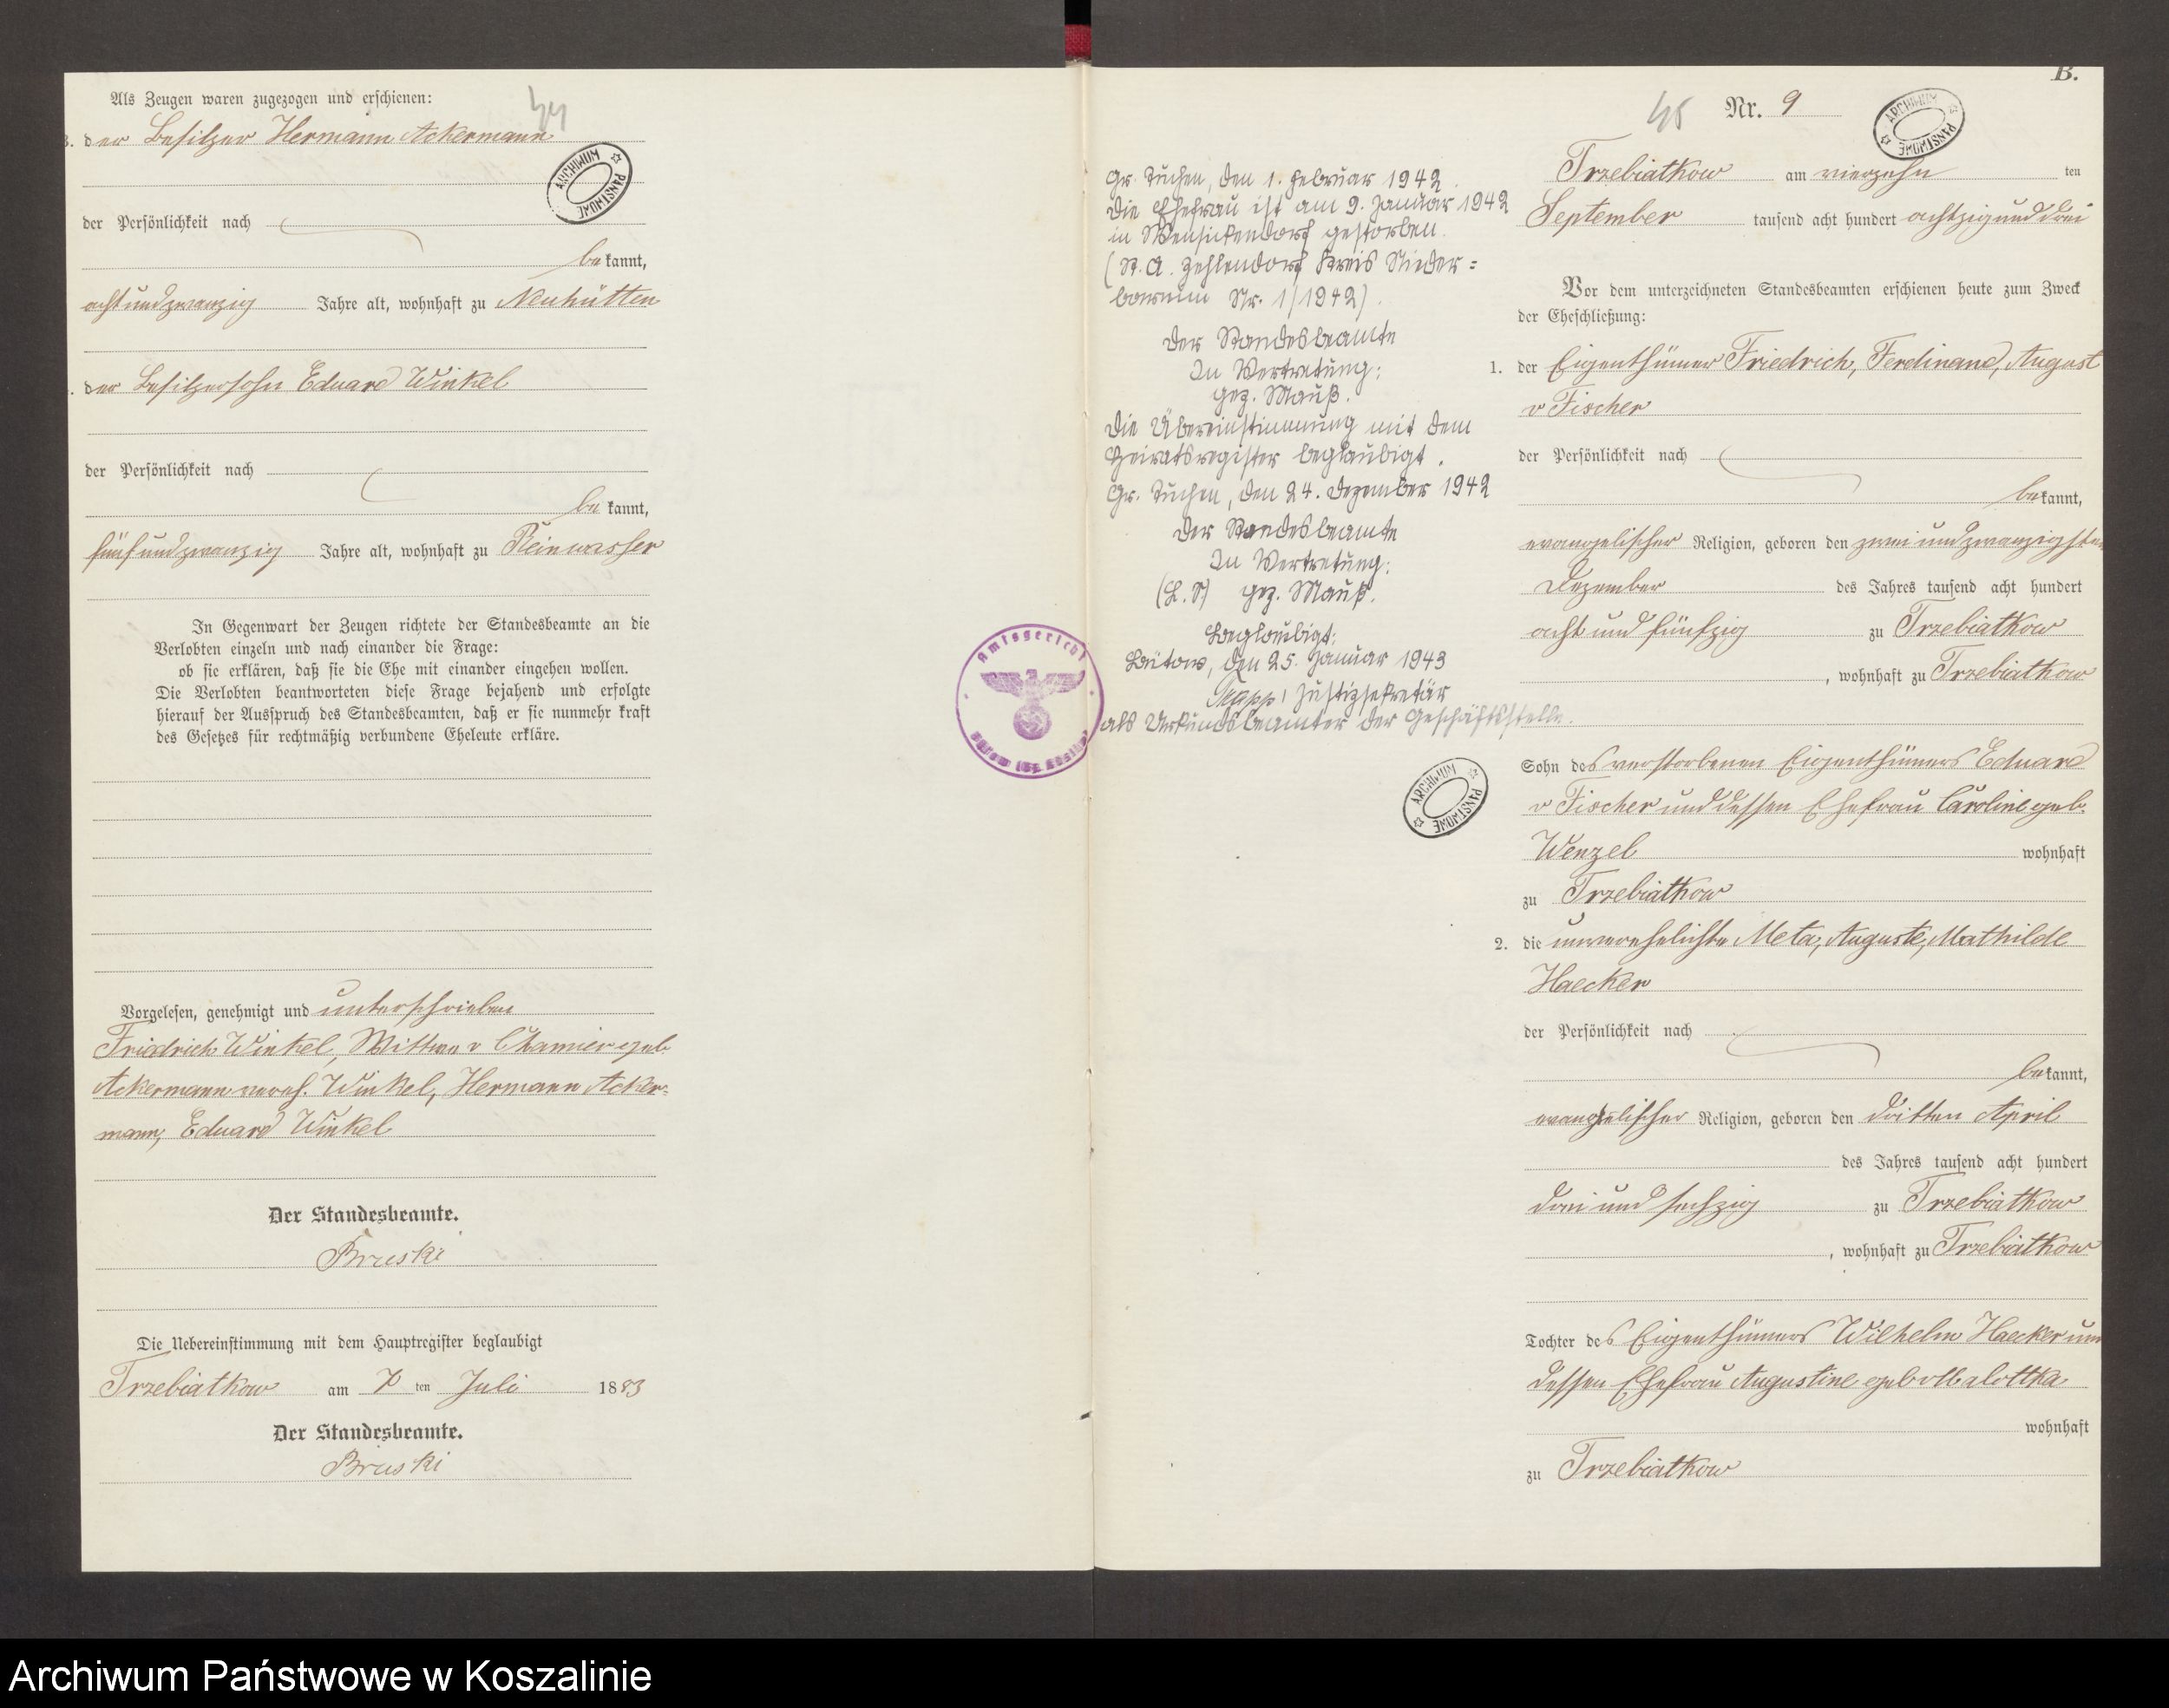 Als Zeugen waren zugezogen und erschienen:
44
3. der Besitzer Hermann Ackermann
ARCHIWUM PAŃSTWOWE
der Persönlichkeit nach
bekannt,
achtundzwanzig Jahre alt, wohnhaft zu Neuhütten
der Besitzersohn Eduard Winkel
der Persönlichkeit nach
bekannt,
fünfundzwanzig Jahre alt, wohnhaft zu Reinwasser
In Gegenwart der Zeugen richtete der Standesbeamte an die
Verlobten einzeln und nach einander die Frage:
ob sie erklären, daß sie die Ehe mit einander eingehen wollen.
Die Verlobten beantworteten diese Frage bejahend und erfolgte
hierauf der Ausspruch des Standesbeamten, daß er sie nunmehr kraft
des Gesetzes für rechtmäßig verbundene Eheleute erkläre.
Vorgelesen, genehmigt und unterschrieben
Friedrich Winkel, Wittwe v Chamier geb.
Ackermann vereh. Winkel, Hermann Acker=
mann, Eduard Winkel
Der Standesbeamte.
Bruski
Die Uebereinstimmung mit dem Hauptregister beglaubigt
Trzebiatkow am 7 ten Juli 1883
Der Standesbeamte.
Bruski
Gr. Tuchen, den 1. Februar 1942.
Die Ehefrau ist am 9. Januar 1942
in Wensickendorf gestorben.
(St. A. Zehlendorf Kreis Nieder=
barnim Nr. 1/1942).
Der Standesbeamte
In Vertretung:
gez. Mauß.
Die Übereinstimmung mit dem
Heiratsregister beglaubigt.
Gr. Tuchen, den 24. Dezember 1942
Der Standesbeamte
In Vertretung:
(L.S) gez. Mauß.
Beglaubigt:
Bütow, den 25. Januar 1943
Justizsekretär
als Urkundsbeamter der Geschäftsstelle.
Amtsgericht
Bütow (Bz. Köslin)
ARCHIWUM PAŃSTWOWE
B.
45 Nr. 9
ARCHIWUM PAŃSTWOWE
Trzebiatkow am vierzehn ten
September tausend acht hundert achtzig und drei
Vor dem unterzeichneten Standesbeamten erschienen heute zum Zweck
der Eheschließung:
1. der Eigenthümer Friedrich, Ferdinand, August
v Fischer
der Persönlichkeit nach
bekannt,
evangelischer Religion, geboren den zwei und zwanzigsten
Dezember des Jahres tausend acht hundert
acht und fünfzig zu Trzebiatkow
, wohnhaft zu Trzebiatkow
Sohn des verstorbenen Eigenthümers Eduard
v Fischer und dessen Ehefrau Caroline geb.
Wenzel wohnhaft
zu Trzebiatkow
2. die unverehelichte Meta, Auguste, Mathilde
Haecker
der Persönlichkeit nach
bekannt,
evangelischer Religion, geboren den dritten April
des Jahres tausend acht hundert
drei und sechzig zu Trzebiatkow
, wohnhaft zu Trzebiatkow
Tochter des Eigenthümers Wilhelm Haecker und
dessen Ehefrau Augustine geb
wohnhaft
zu Trzebiatkow
Archiwum Państwowe w Koszalinie